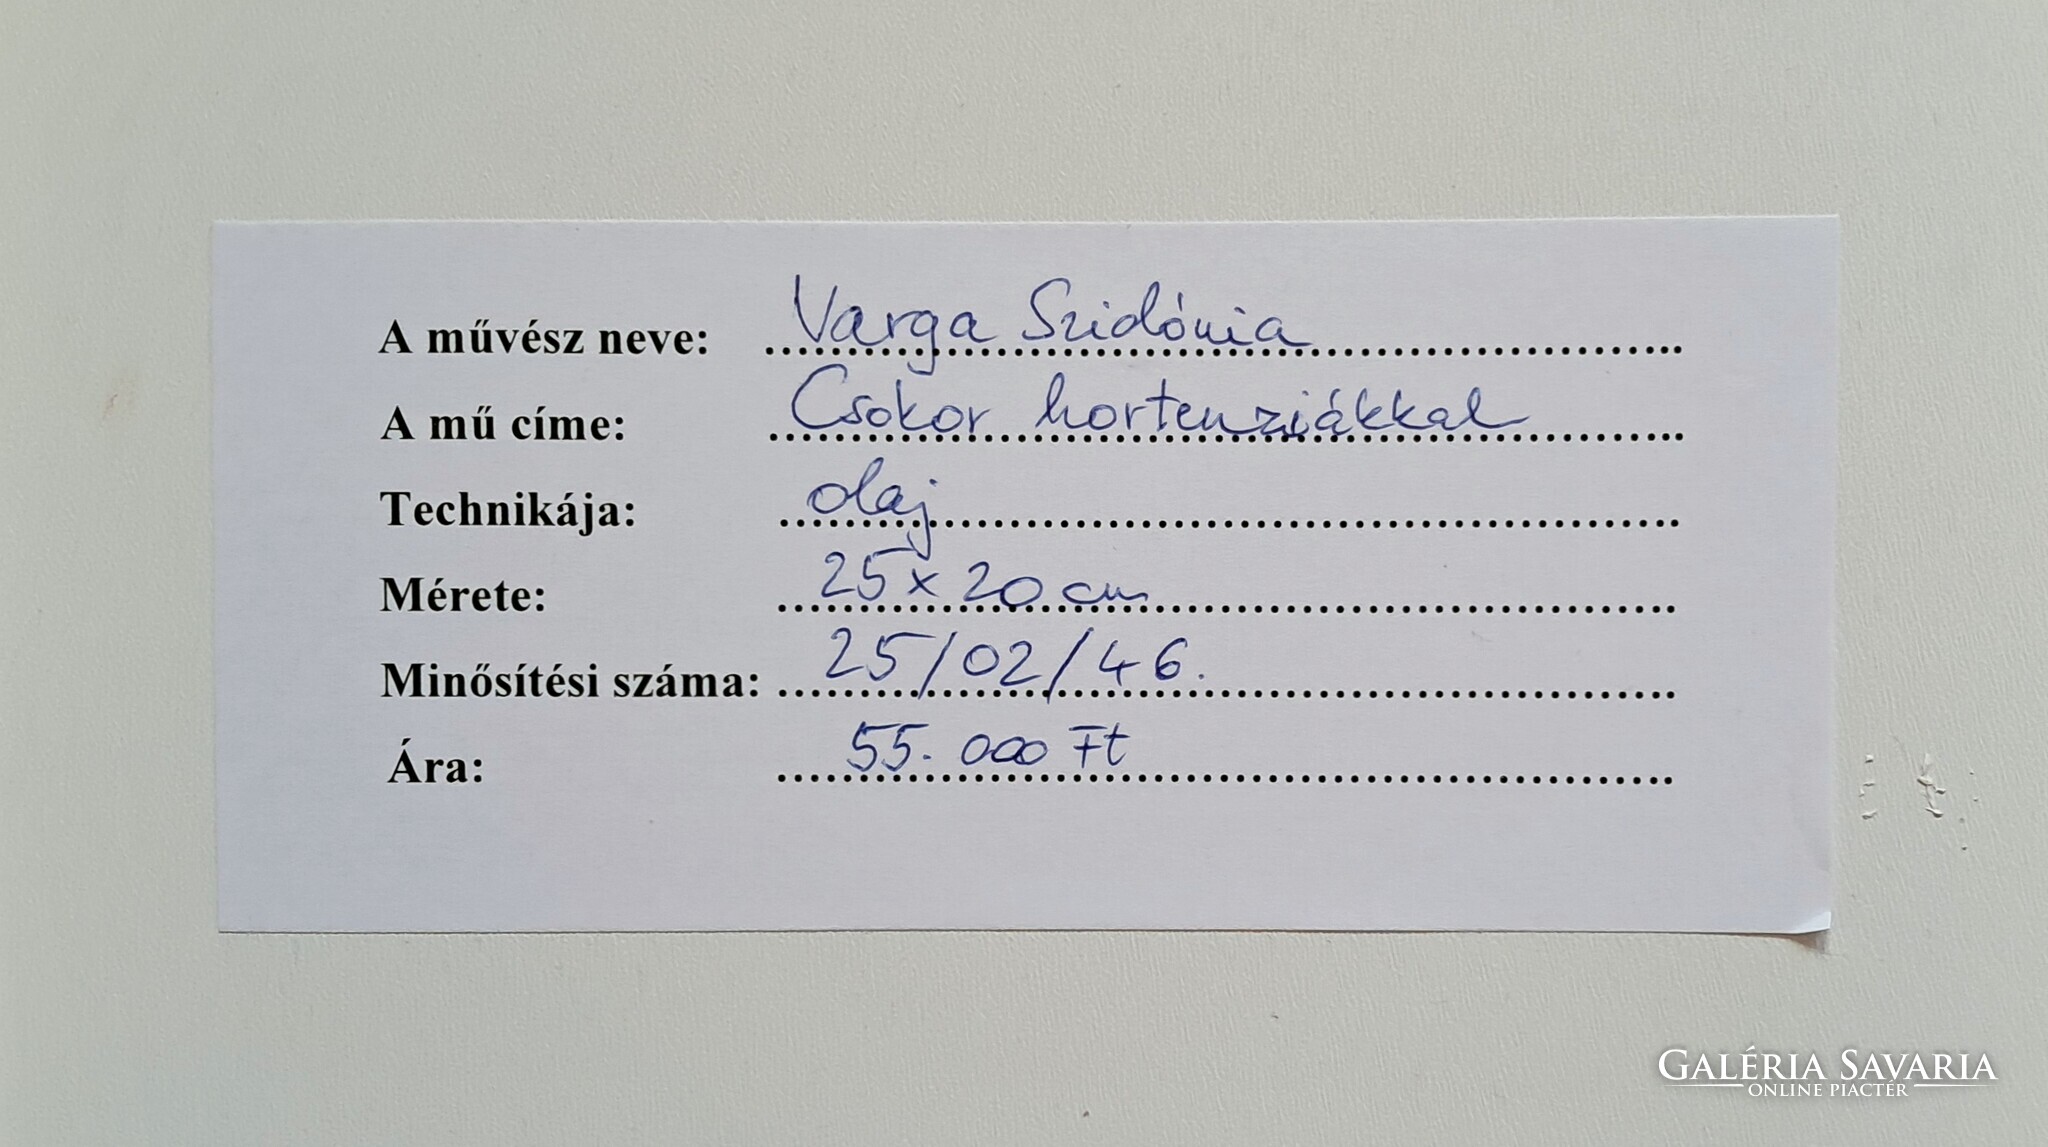 A művész neve: Varga Szidónia
A mű címe: Csokor hortenziákkal
Technikája: olaj
Mérete: 25 x 20 cm
Minősítési száma: 25/02/46.
Ára: 55.000 Ft
GALÉRIA SAVARIA
ONLINE PIACTÉR